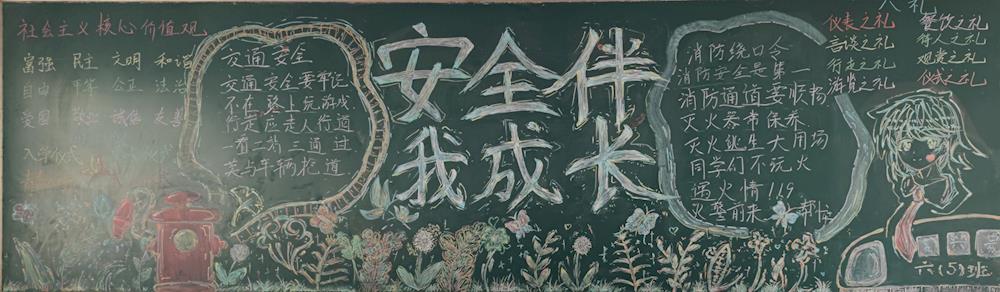 社会主义核心价值观
富强 民主 文明 和谐
自由 平等 公正 法治
爱国 敬业 诚信 友善
入学仪式
交通安全
交通安全要牢记
不在路上玩游戏
行走应走人行道
一看二站三通过
莫与车辆抢道
安全伴
我成长
消防绕口令
消防安全是第一
消防通道要顺畅
灭火器布保养
灭火逃生大用场
同学们不玩火
遇火情119
火警前来帮忙
八礼
仪表之礼 餐饮之礼
言谈之礼 待人之礼
行走之礼 观赏之礼
游览之礼 仪式之礼
六(5)班